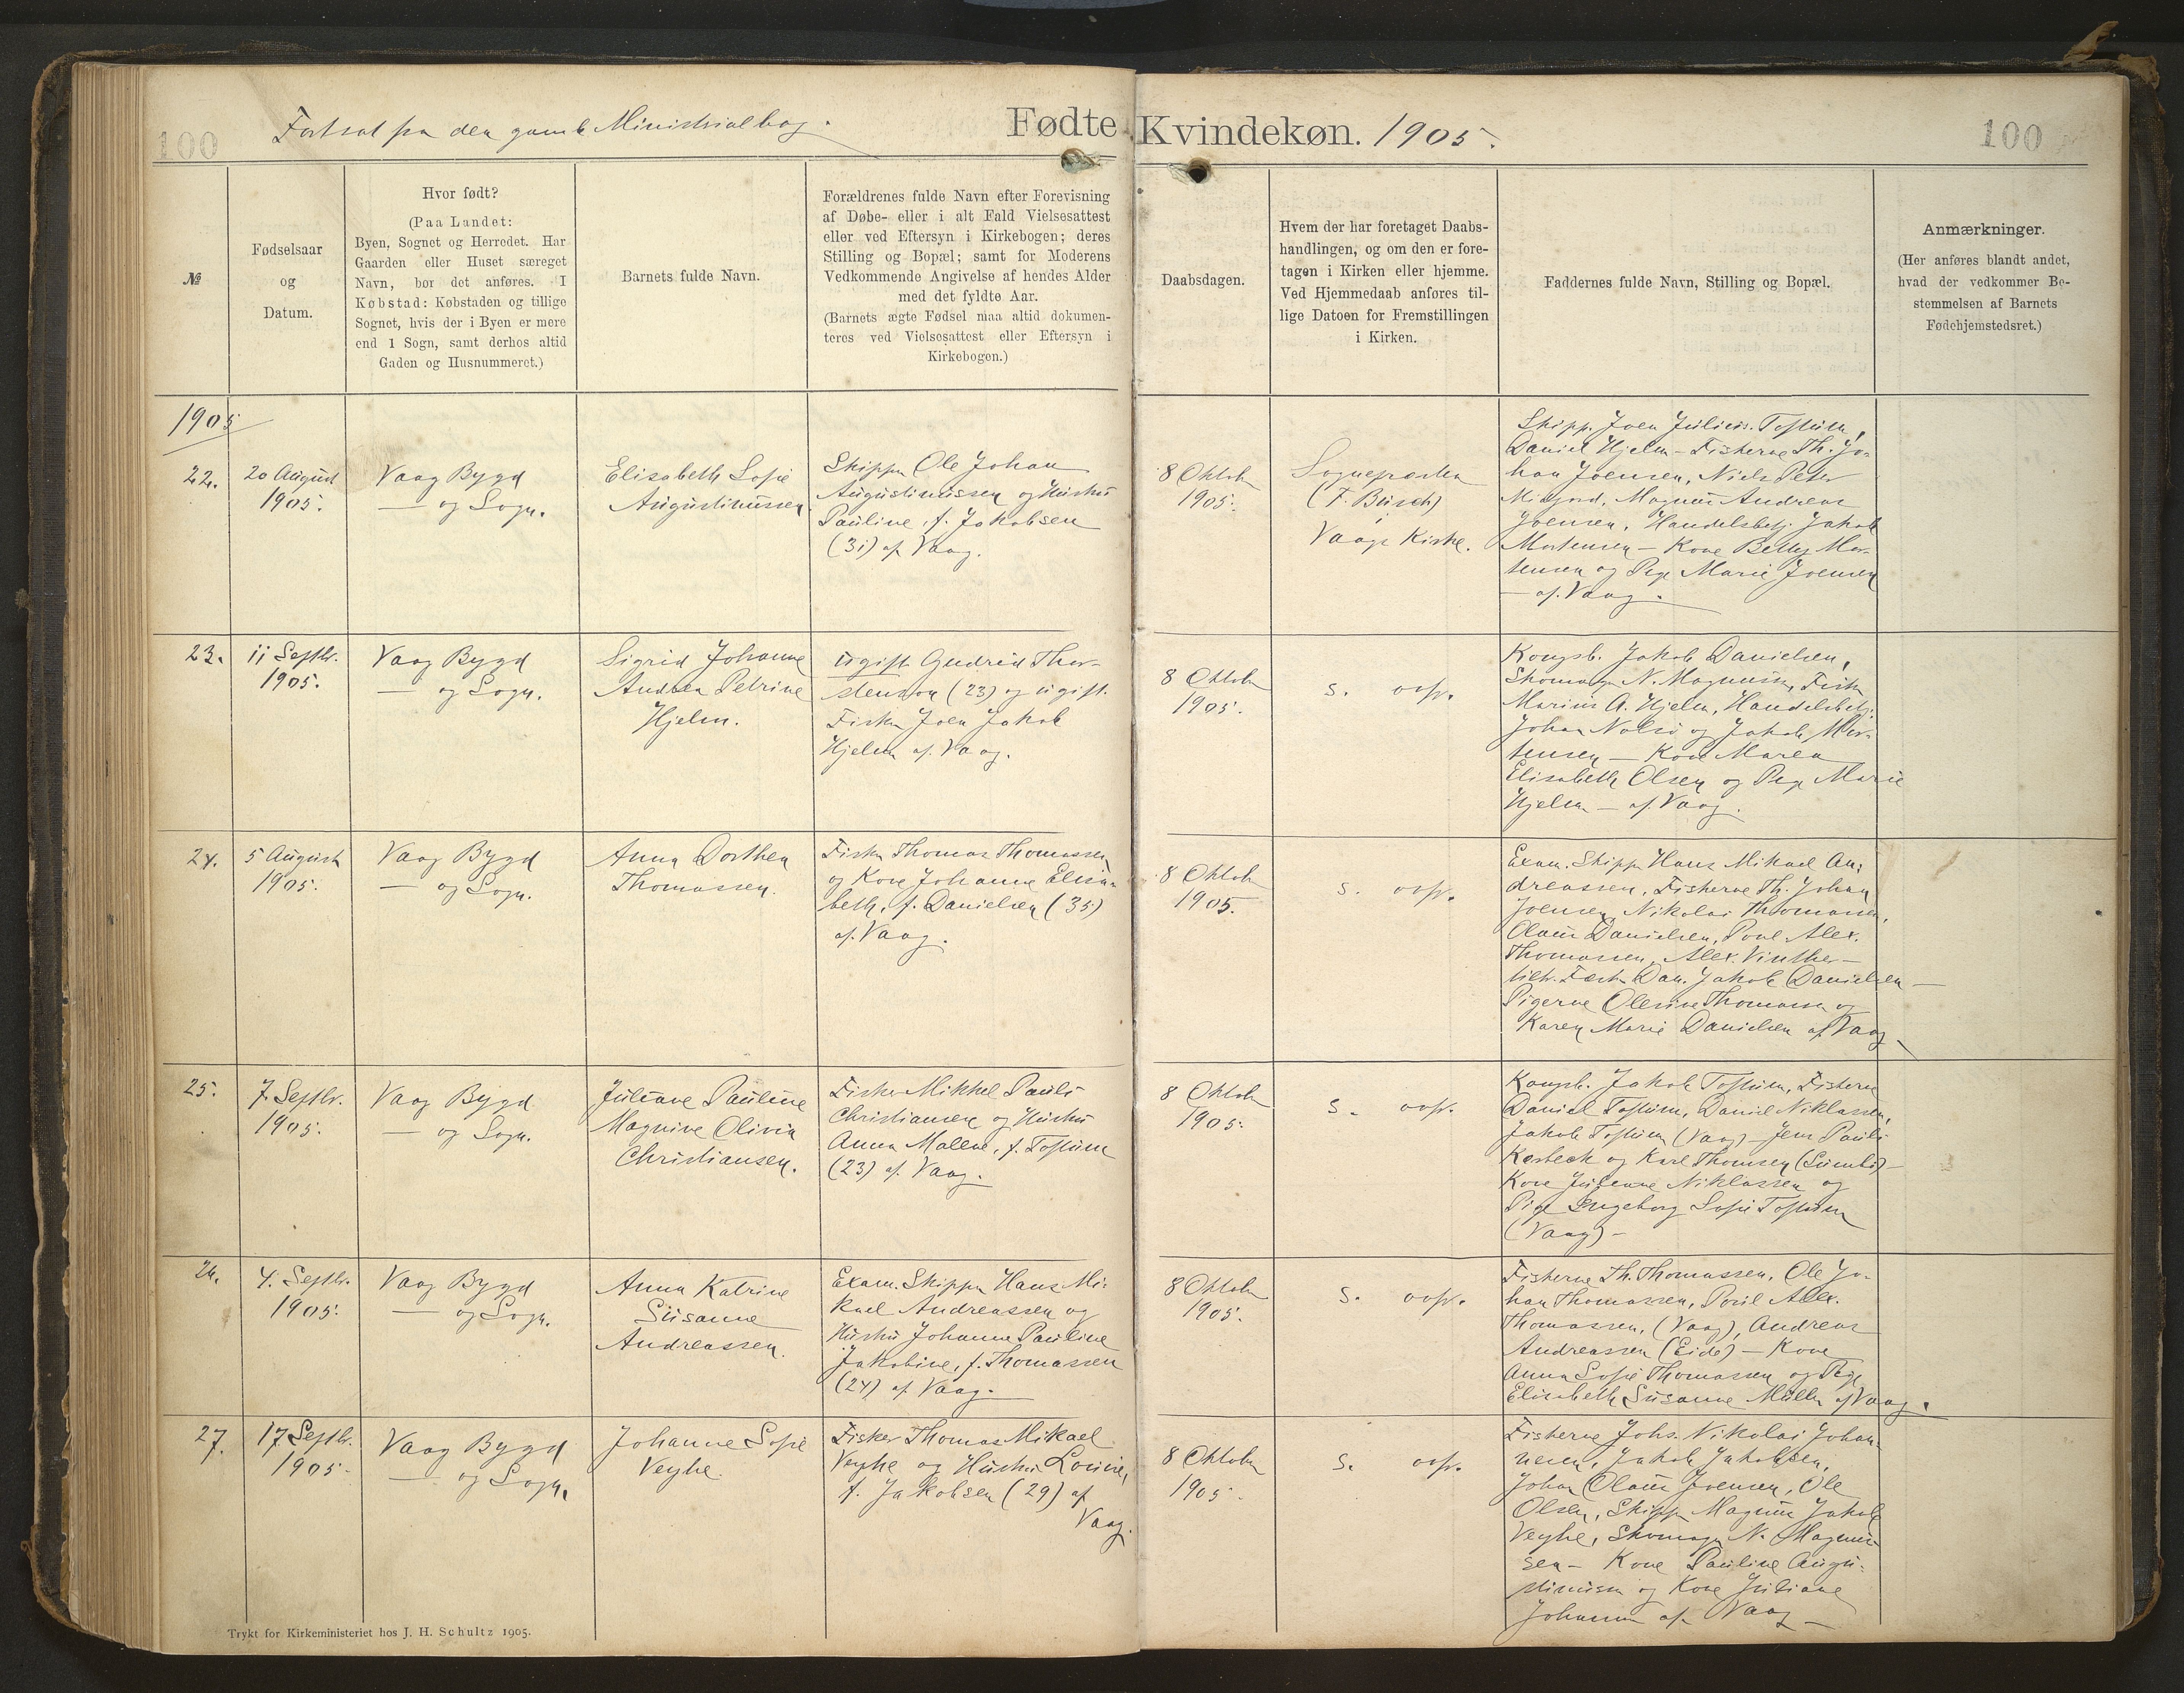 100
Fortsat fra den gamle Ministerialbog.
Fødte Kvindekøn. 1905.
100
№
Fødselsaar
og
Datum.
Hvor født?
(Paa Landet:
Byen, Sognet og Herredet. Har
Gaarden eller Huset særeget
Navn, bør det anføres. I
Købstad: Købstaden og tillige
Sognet, hvis der i Byen er mere
end 1 Sogn, samt derhos altid
Gaden og Husnummeret.)
Barnets fulde Navn.
Forældrenes fulde Navn efter Forevisning
af Døbe- eller i alt Fald Vielsesattest
eller ved Eftersyn i Kirkebogen; deres
Stilling og Bopæl; samt for Moderens
Vedkommende Angivelse af hendes Alder
med det fyldte Aar.
(Barnets ægte Fødsel maa altid dokumen-
teres ved Vielsesattest eller Eftersyn i
Kirkebogen.)
Daabsdagen.
Hvem der har foretaget Daabs-
handlingen, og om den er fore-
tagen i Kirken eller hjemme.
Ved Hjemmedaab anføres til-
lige Datoen for Fremstillingen
i Kirken.
Faddernes fulde Navn, Stilling og Bopæl.
Anmærkninger.
(Her anføres blandt andet,
hvad der vedkommer Be-
stemmelsen af Barnets
Fødehjemstedsret.)
1905
22.
20 August
1905.
Vaag Bygd
— og Sogn.
Elisabeth Sofie
Augustinussen
Skipper Ole Johan
Augustinussen og Hustru
Pauline, f. Jakobsen
(31) af Vaag.
8 Oktober
1905.
Sognepræsten
(F. Busch)
i
Vaags Kirke.
Skipp. Joen Julius Toftum,
Daniel Hjelm - Fiskerne Th. Jo-
han Joensen, Niels Peter
Midjord, Magnus Andreas
Joensen, Handelsbetj. Jakob
Mortensen — Kone Betty Mor-
tensen og Pige Marie Joensen
— af Vaag.
23.
11 Septbr.
1905.
Vaag Bygd
— og Sogn.
Sigrid Johanne
Andrea Petrine
Hjelm.
ugift Gudrid Thor-
stensen (23) og ugift
Fisker Joen Jakob
Hjelm af Vaag.
8 Oktober
1905.
s. ovfr.
Kongsb. Jakob Danielsen,
Skomager N. Magnussen, Fisker
Marius A. Hjelm, Handelsbetj.
Johan Nolsø og Jakob Mor-
tensen — Kone Maren
Elisabeth Olsen og Pige Marie
Hjelm — af Vaag.
24.
5 August
1905.
Vaag Bygd
— og Sogn.
Anna Dorthea
Thomassen.
Fisker Thomas Thomassen
og Kone Johanne Elisa-
beth, f. Danielsen (35)
af Vaag.
8 Oktober
1905.
s. ovfr.
Exam. Skipper Hans Mikael An-
dreassen, Fiskerne Th. Johan
Joensen, Nikolai Thomassen,
Olaus Danielsen, Poul Alex.
Thomassen, Alex. Vinther —
Dan. Jakob Danielsen —
Pigerne Olevine Thomassen og
Karen Marie Danielsen af Vaag
25.
7. Septbr.
1905.
Vaag Bygd
— og Sogn.
Juliane Pauline
Magnine Olivia
Christiansen.
Fisker Mikkel Pauli
Christiansen og Hustru
Anna Malene, f. Toftum
(23) af Vaag.
8 Oktober
1905.
s. ovfr.
Kongsb. Jakob Toftum, Fiskerne
Daniel Toftum, Daniel Niklassen,
Jakob Toftum (Vaag) — Jens Pauli
Kærbech og Karl Thomsen (Sumbø) —
Kone Juliane Niklassen og
Pige Ingeborg Sofie Toftum
(Vaag) —
26.
4. Septbr.
1905.
Vaag Bygd
— og Sogn.
Anna Katrine
Susanne
Andreassen.
Exam. Skipper Hans Mi-
kael Andreassen og
Hustru Johanne Pauline
Jakobine, f. Thomassen
(24) af Vaag.
8 Oktober
1905.
s. ovfr.
Fiskerne Th. Thomassen, Ole Jo-
han Thomassen, Poul Alex.
Thomassen, (Vaag), Andreas
Andreassen (Eide) — Kone
Anna Sofie Thomassen og Pige
Elisabeth Susanne Müller af Vaag.
27.
17 Septbr.
1905.
Vaag Bygd
— og Sogn.
Johanne Sofie
Veyhe.
Fisker Thomas Mikael
Veyhe og Hustru Lovise,
f. Jakobsen (29) af
Vaag.
8 Oktober
1905.
s. ovfr.
Fiskerne Johs. Nikolai Johan-
nesen, Jakob Jakobsen,
Johan Olaus Joensen, Ole
Olsen, Skipper Magnus Jakob
Veyhe, Skomager N. Magnus-
sen — Kone Pauline Augu-
stinussen og Kone Juliane
Johannesen af Vaag —
Trykt for Kirkeministeriet hos J. H. Schultz 1905.